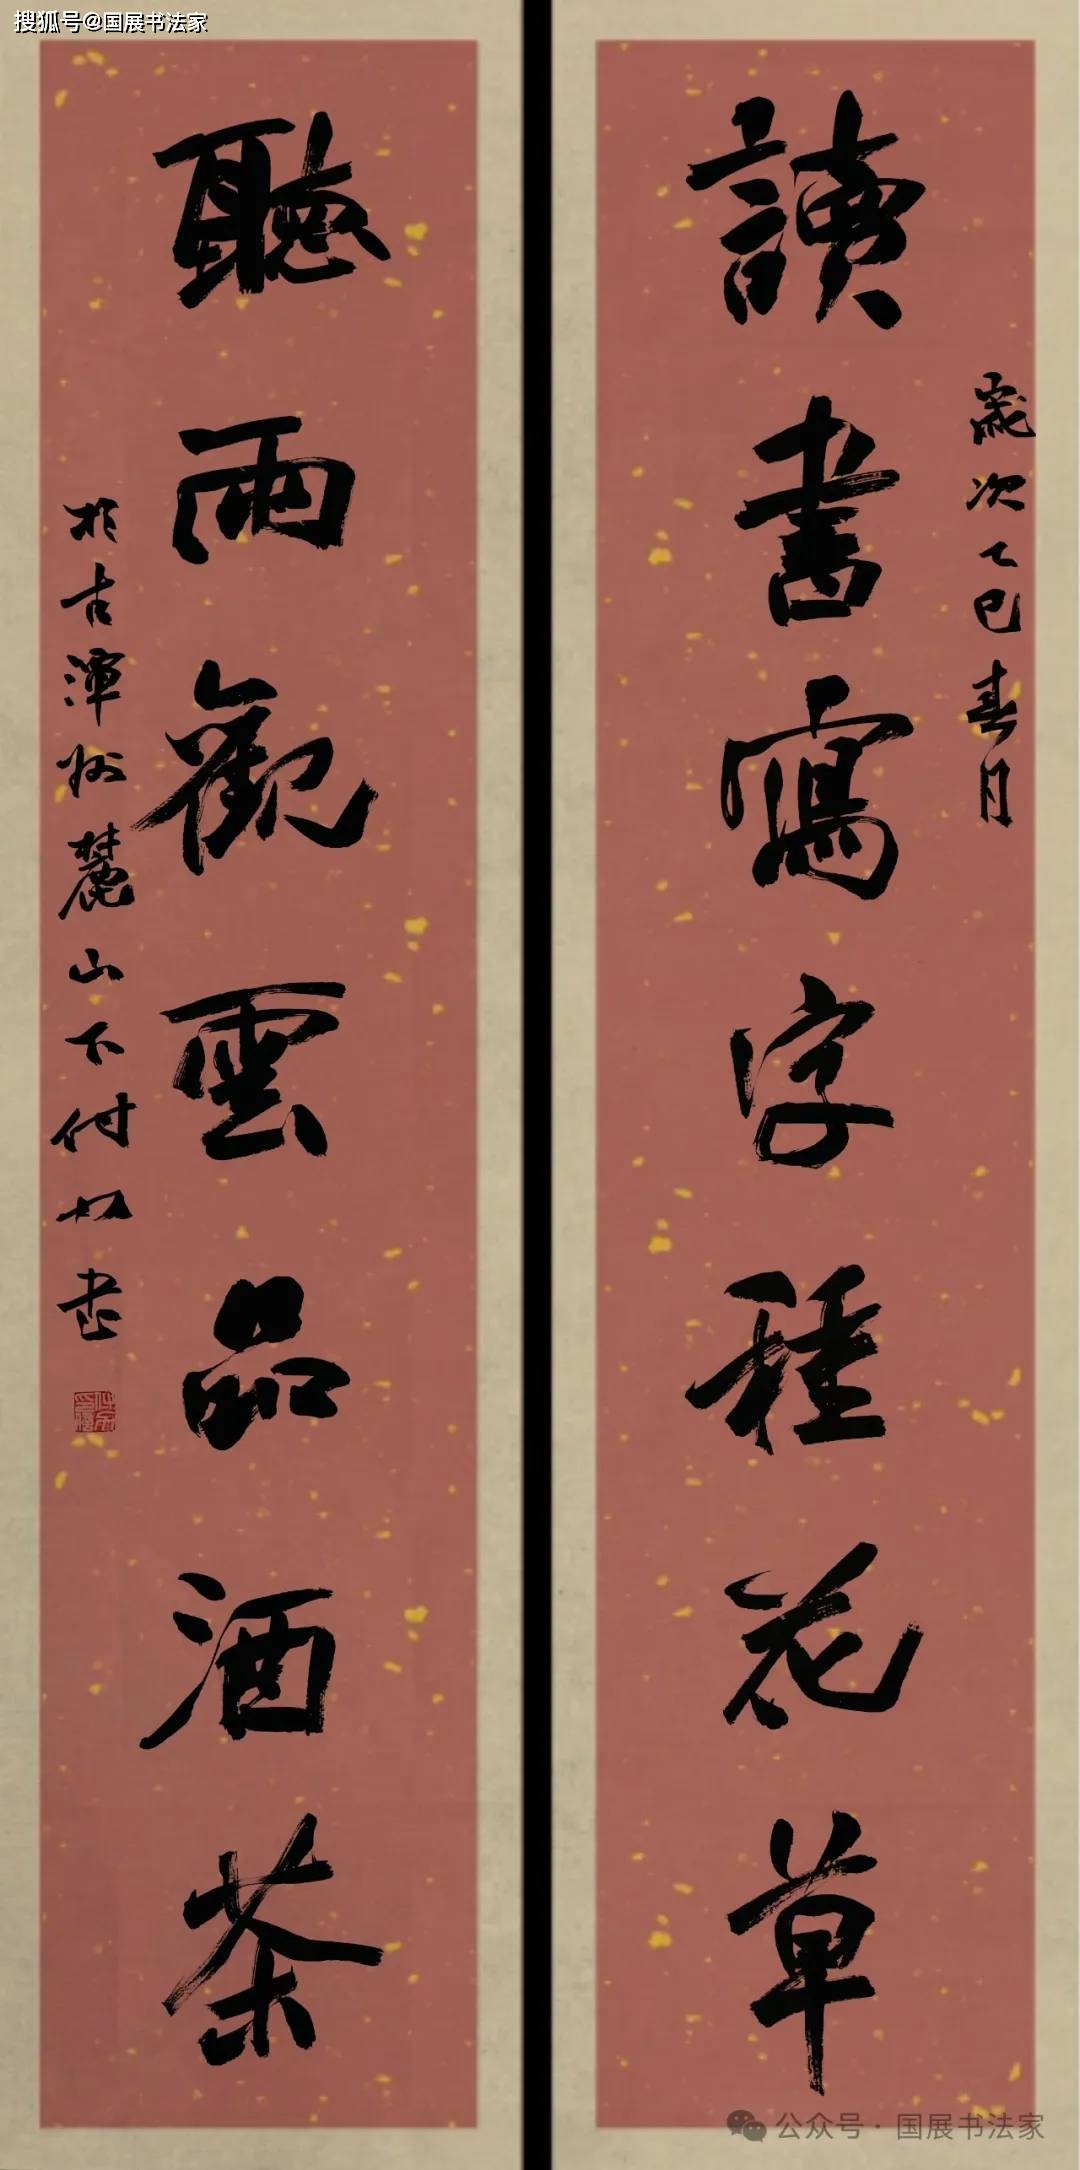 搜狐号@国展书法家
讀書寫字種花草
歲次乙巳春月
聽雨觀雲品酒茶
於古潭州麓山下付如書
公众号·国展书法家